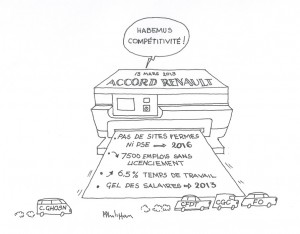 HABEMUS
COMPÉTITIVITÉ !
13 MARS 2013
ACCORD RENAULT
• PAS DE SITES FERMES
NI PSE → 2016
• ↘ 7500 EMPLOIS SANS
LICENCIEMENT
• ↗ 6.5% TEMPS DE TRAVAIL
• GEL DES SALAIRES → 2013
C. GHOSN
CFDT
CGC
FO